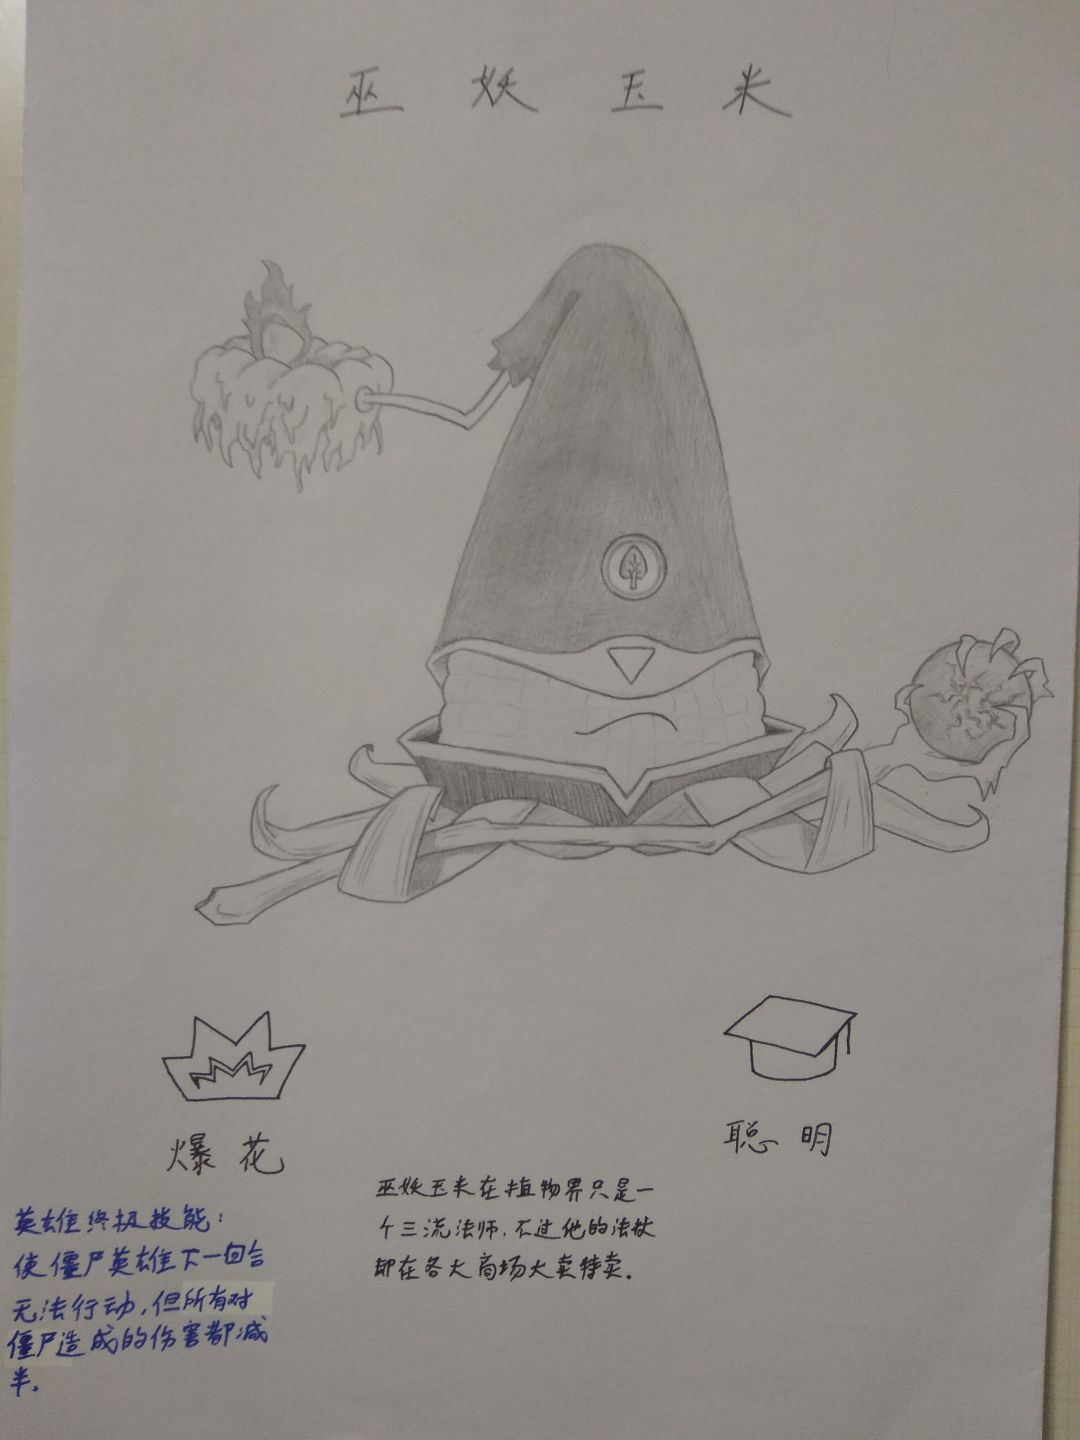 巫妖玉米
爆花
聪明
英雄终极技能：
使僵尸英雄下一回合
无法行动，但所有对
僵尸造成的伤害都减
半。
巫妖玉米在植物界只是一
个三流法师，不过他的法杖
却在各大商场大卖特卖。